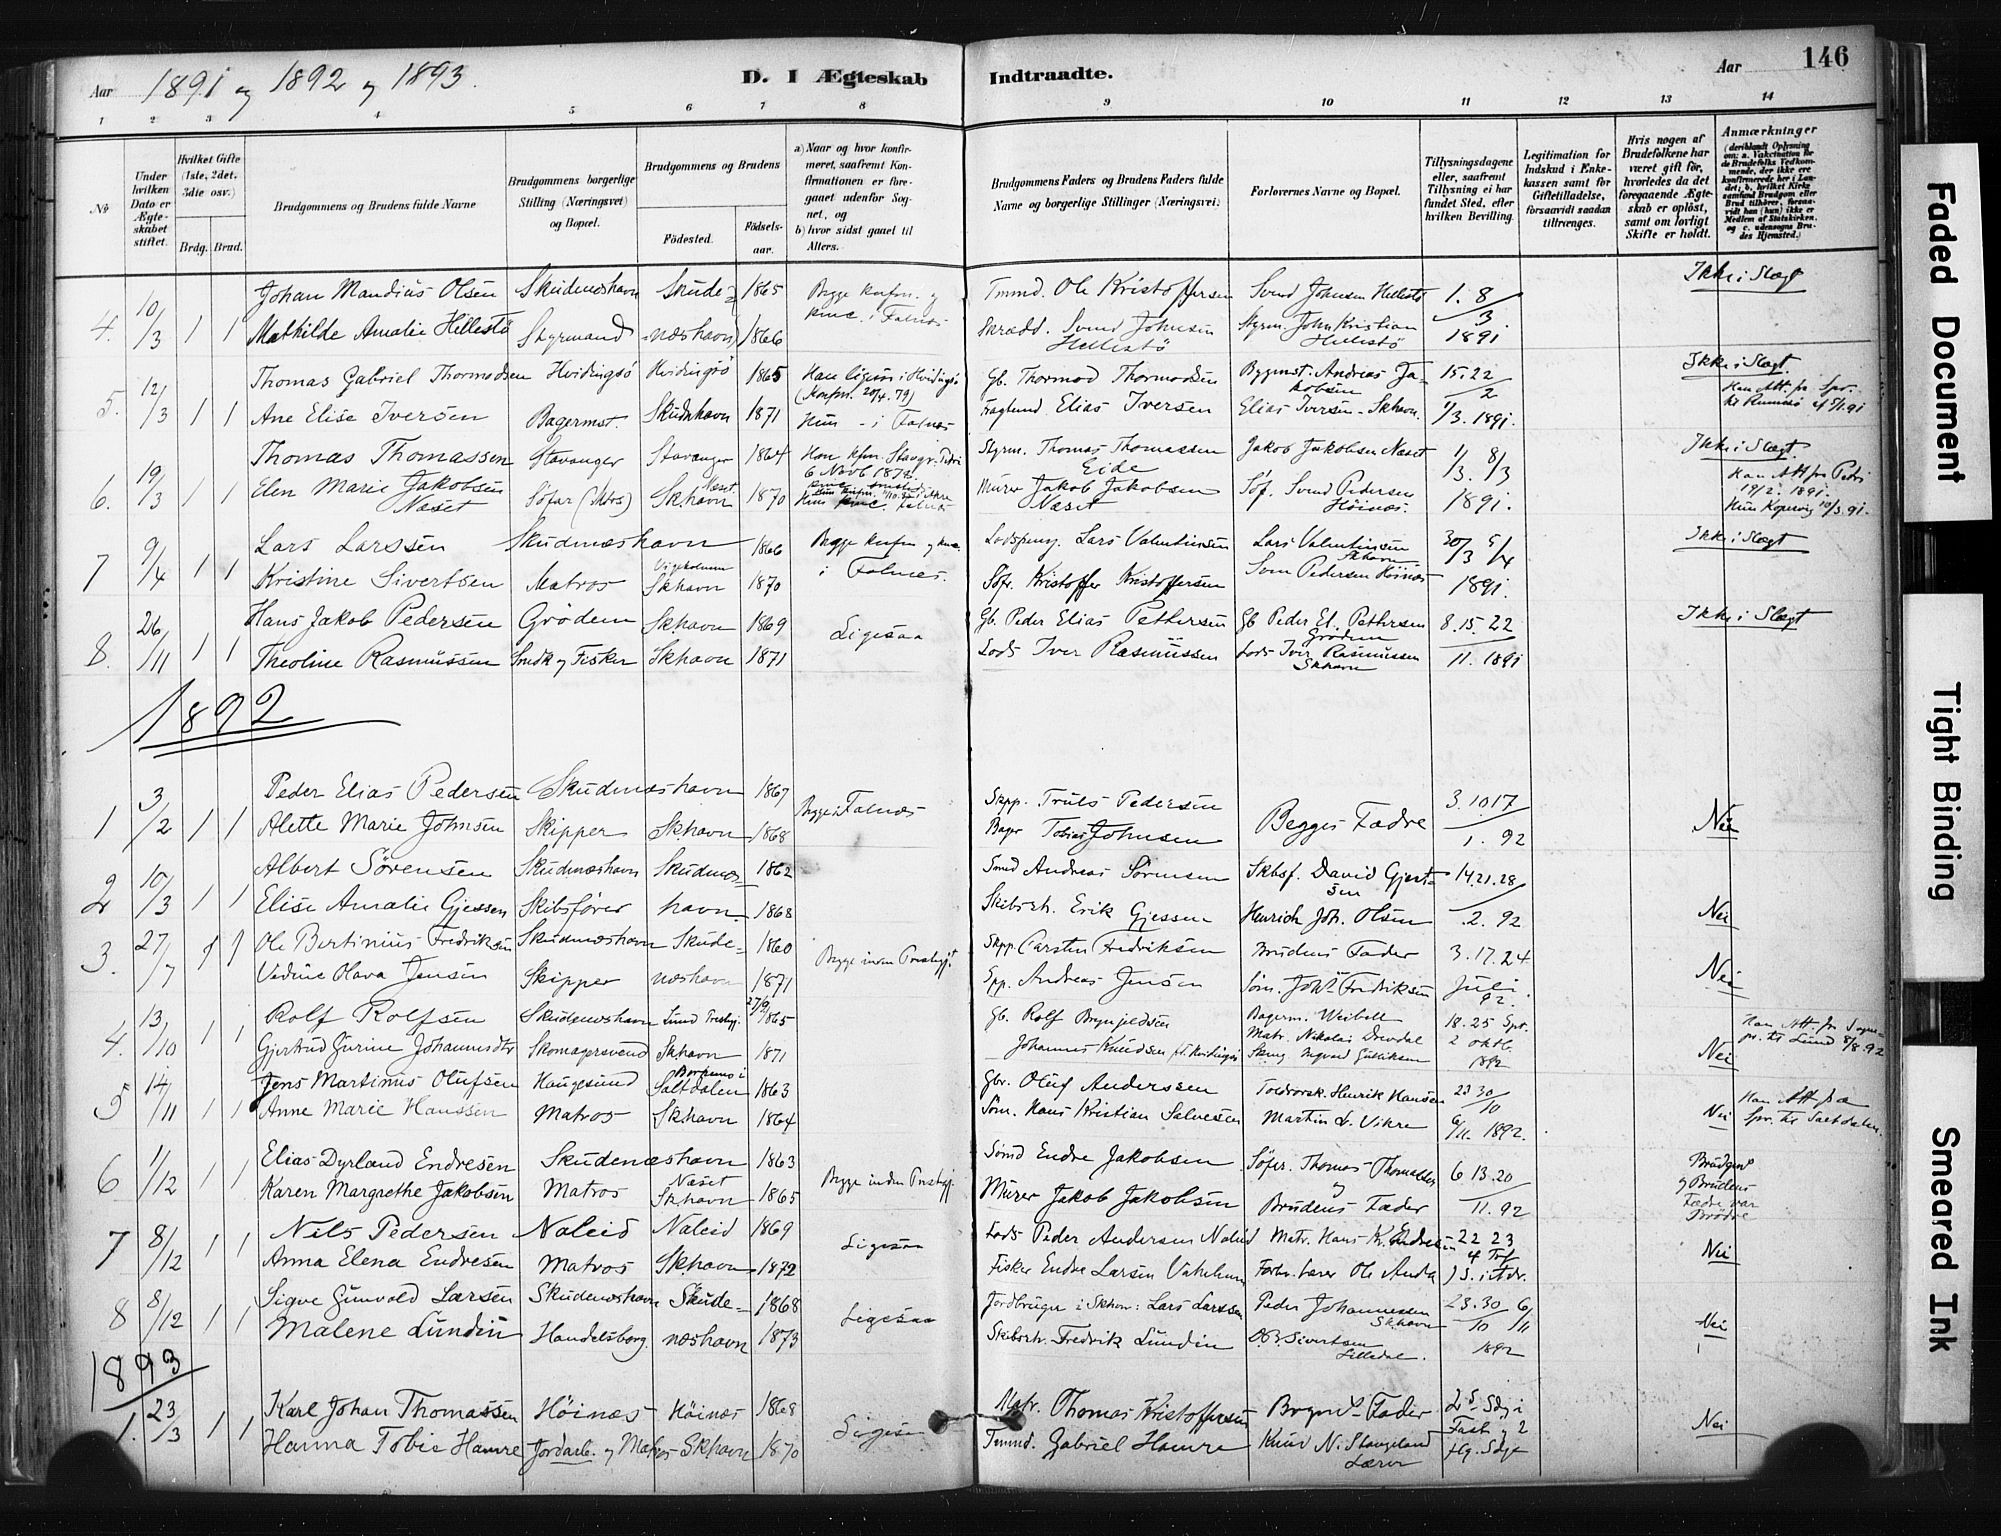 Aar 1891 og 1892 og 1893.
D. I Ægteskab Indtraadte.
Aar 146
1 2 3 4 5 6 7 8 9 10 11 12 13 14
No
Under hvilken Dato er Ægteskabet stiftet.
Hvilket Gifte (1ste, 2det, 3die osv.)
Brdg. Brud.
Brudgommens og Brudens fulde Navne
Brudgommens borgerlige Stilling (Næringsvei) og Bopæl.
Brudgommens og Brudens
Fødested. Fødselsaar.
a) Naar og hvor konfirmeret, saafremt Konfirmationen er foregaaet udenfor Sognet, og b) hvor sidst gaaet til Alters.
Brudgommens Faders og Brudens Faders fulde Navne og borgerlige Stillinger (Næringsvei)
Forlovernes Navne og Bopæl.
Tillysningsdagene eller, saafremt Tillysning ei har fundet Sted, efter hvilken Bevilling.
Legitimation for Indskud i Enkekassen samt for Giftetilladelse, forsaavidt saadan tiltrænges.
Hvis nogen af Brudefolkene har været gift før, hvorledes da det foregaaende Ægteskab er opløst, samt om lovligt Skifte er holdt.
Anmærkninger (deriblandt Oplysning om: a. Vakcination for de Brudefolks Vedkommende, der ikke ere konfirmerede her i Landet; b. hvilket Kirkesamfund Brudgom eller Brud tilhører, forsaavidt han (hun) ikke er Medlem af Statskirken, og c. udensogns Brudes Hjemsted.)
4. 10/3 1 1 Johan Mandius Olsen Skudeneshavn Skude- 1865 Begge konfm. og Tmmd. Ole Kristoffersen Svend Johnsen Hellestö 1. 8/3 Ikke i Slægt
Mathilde Amalie Hellestö Styrmand næshavn 1866 i Falnæs Skrædd. Svend Johnsen Hellestö Styrm. John Kristian Hellestö 1891
5. 12/3 1 1 Thomas Gabriel Thormodsen Hvidingsö Hvidingsö 1865 Han ligesaa i Hvidingsö (Konfm. 20/4. 79) Gb. Thormod Thormodsen Bygmst. Andreas Jakobsen 15. 22/2 Ikke i Slægt.
Ane Elise Iversen Bagermst. Skudnhavn 1871 Hun - i Falnæs Elias Iversen Elias Iversen - Skhavn. 1/3. 1891.
6. 19/3 1 1 Thomas Thomassen Stavanger Stavanger 1864 Styrm. Thomas Thomassen Eide Jakob Jakobsen Næset 1/3. 8/3 Ikke i Slægt. Han Att. fra Petri 19/2. 1891.
Elen Marie Jakobsen Næset Söfar (Matros) Næset Skhavn 1870 Falnæs Murer Jakob Jakobsen Næset Söf. Svend Pedersen Höinæs. 1891. Hun Kopervig 10/3. 91.
7 9/4 1 1 Lars Larssen Skudnæshavn 1866 Begge konfm og i Falnæs. Lars Valentinsen Lars Valentinsen Skhavn 30/3 5/4 Ikke i Slægt
Kristine Sivertsen Matros Skhavn 1870 Söfr. Kristoffer Kristoffersen Sven Pedersen Höinæs 1891.
8. 26/11 1 1 Hans Jakob Pedersen Grödem Skhavn 1869 Ligesaa Gb. Peder Elias Pettersen Gb Peder El. Pettersen Grödem 8. 15. 22/ Ikke i Slægt
Theoline Rasmussen Smed og Fisker Skhavn 1871 Lods Iver Rasmussen Lods Iver Rasmussen Skhavn 11. 1891
1892
1 3/2 1 1 Peder Elias Pedersen Skudnæshavn 1867 Begge i Falnæs Skpp. Truls Pedersen Begges Fædre 3. 10 17/ Nei
Alette Marie Johnsen Skipper Skhavn 1868 Bager Tobias Johnsen 1. 92
2 10/3 1 1 Albert Sörensen Skudnæshavn Skudnæs- 1862 Smed Andreas Sörensen Skbsf. David Gjertsen 14. 21. 28/
Elise Amalie Gjessen Skibsförer havn. 1868 Erik Gjessen Henrich Joh. Olsen .2. 92 Nei
3. 27/7 1 1 Ole Bertinius Fredriksen Skudnæshavn Skude- 1860 Begge inden Præstegj. Skpp. Carsten Fredriksen Brudens Fader 3. 17. 24 Nei
Vedine Olava Jensen Skipper næshavn 1871 Spp. Andreas Jensen Söm. Joh. Fredriksen Juli. 92.
4. 13/10 1 1 Rolf Rolfsen Skudeneshavn Lund Præstegj. 27/9 1865 Gb. Rolf Bagerm. Weibell 18. 25 Spt. Han Att. fra Sognepr. til Lund 8/8. 92
Gjertrud Jurine Johannesdtr Skomagersvend Skhavn 1871 Johannes Knudsen Matr. Nikolai 2 oktb. 1892 Nei
5 14/11 1 1 Jens Martinus Olufsen Haugesund Saltdalen 1863 Gbr. Oluf Anderssen Henrik Hansen 23 30/10 Han Att fra Spr. til Saltdalen.
Anne Marie Hanssen Matros Skhavn 1864 Söm. Hans Kristian Salvesen Martin L. Vikre 6/11. 1892. Nei
6 1/12 1 1 Elias Dyrland Endresen Skudenæshavn 1863 Begge inden Præstegj. Sömd Endre Jakobsen Söfer. Thomas Thomassen og 6 13. 20/ Brudgms og Brudens Fædre var Brödre
Karen Margrethe Jakobsen Matros Næset Skhavn 1865 Murer Jakob Jakobsen Brudens Fader 11. 92
7 8/12 1 1 Nils Pedersen Naleid Naleid 1869 Ligesaa Lods Peder Andersen Naleid Matr. Hans K. Endresen 22 23 Nei
Anna Elena Endresen Matros Skhavn 1872 Fisker Endre Larsen Ole Anda
8 8/12 1 1 Sigve Gunvald Larsen Skudeneshavn Skude- 1868 Ligesaa Jordbruger i Skhavn: Lars Larssen Peder Johannessen Skhavn 23. 30/10 6/11
Malene Lundin Handelsborg. næshavn 1873 Fredrik Lundin O. B. Sivertsen Lilledal. 1892 Nei
1893
1. 23/3 1 1 Karl Johan Thomassen Höinæs Höinæs 1868 Ligesaa Thomas Kristoffersen Brgms Fader 2d. Sdg i Fast. og 2 Nei
Hanna Tobie Hamre Jordarb. og Matros Skhavn 1870 Tmmd. Gabriel Hamre Knud N. Stangeland Lærer
Faded Document
Tight Binding
Smeared Ink